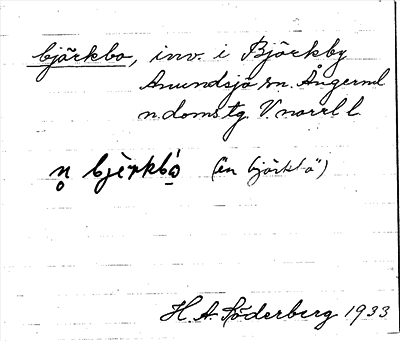 björkbo, inv. i Björkby
Anundsjö sn. Ångerml
n. domstg. V. norrl l.
n̥ bjèrkbó̱ (en björkbo")
H. A. Söderberg 1933